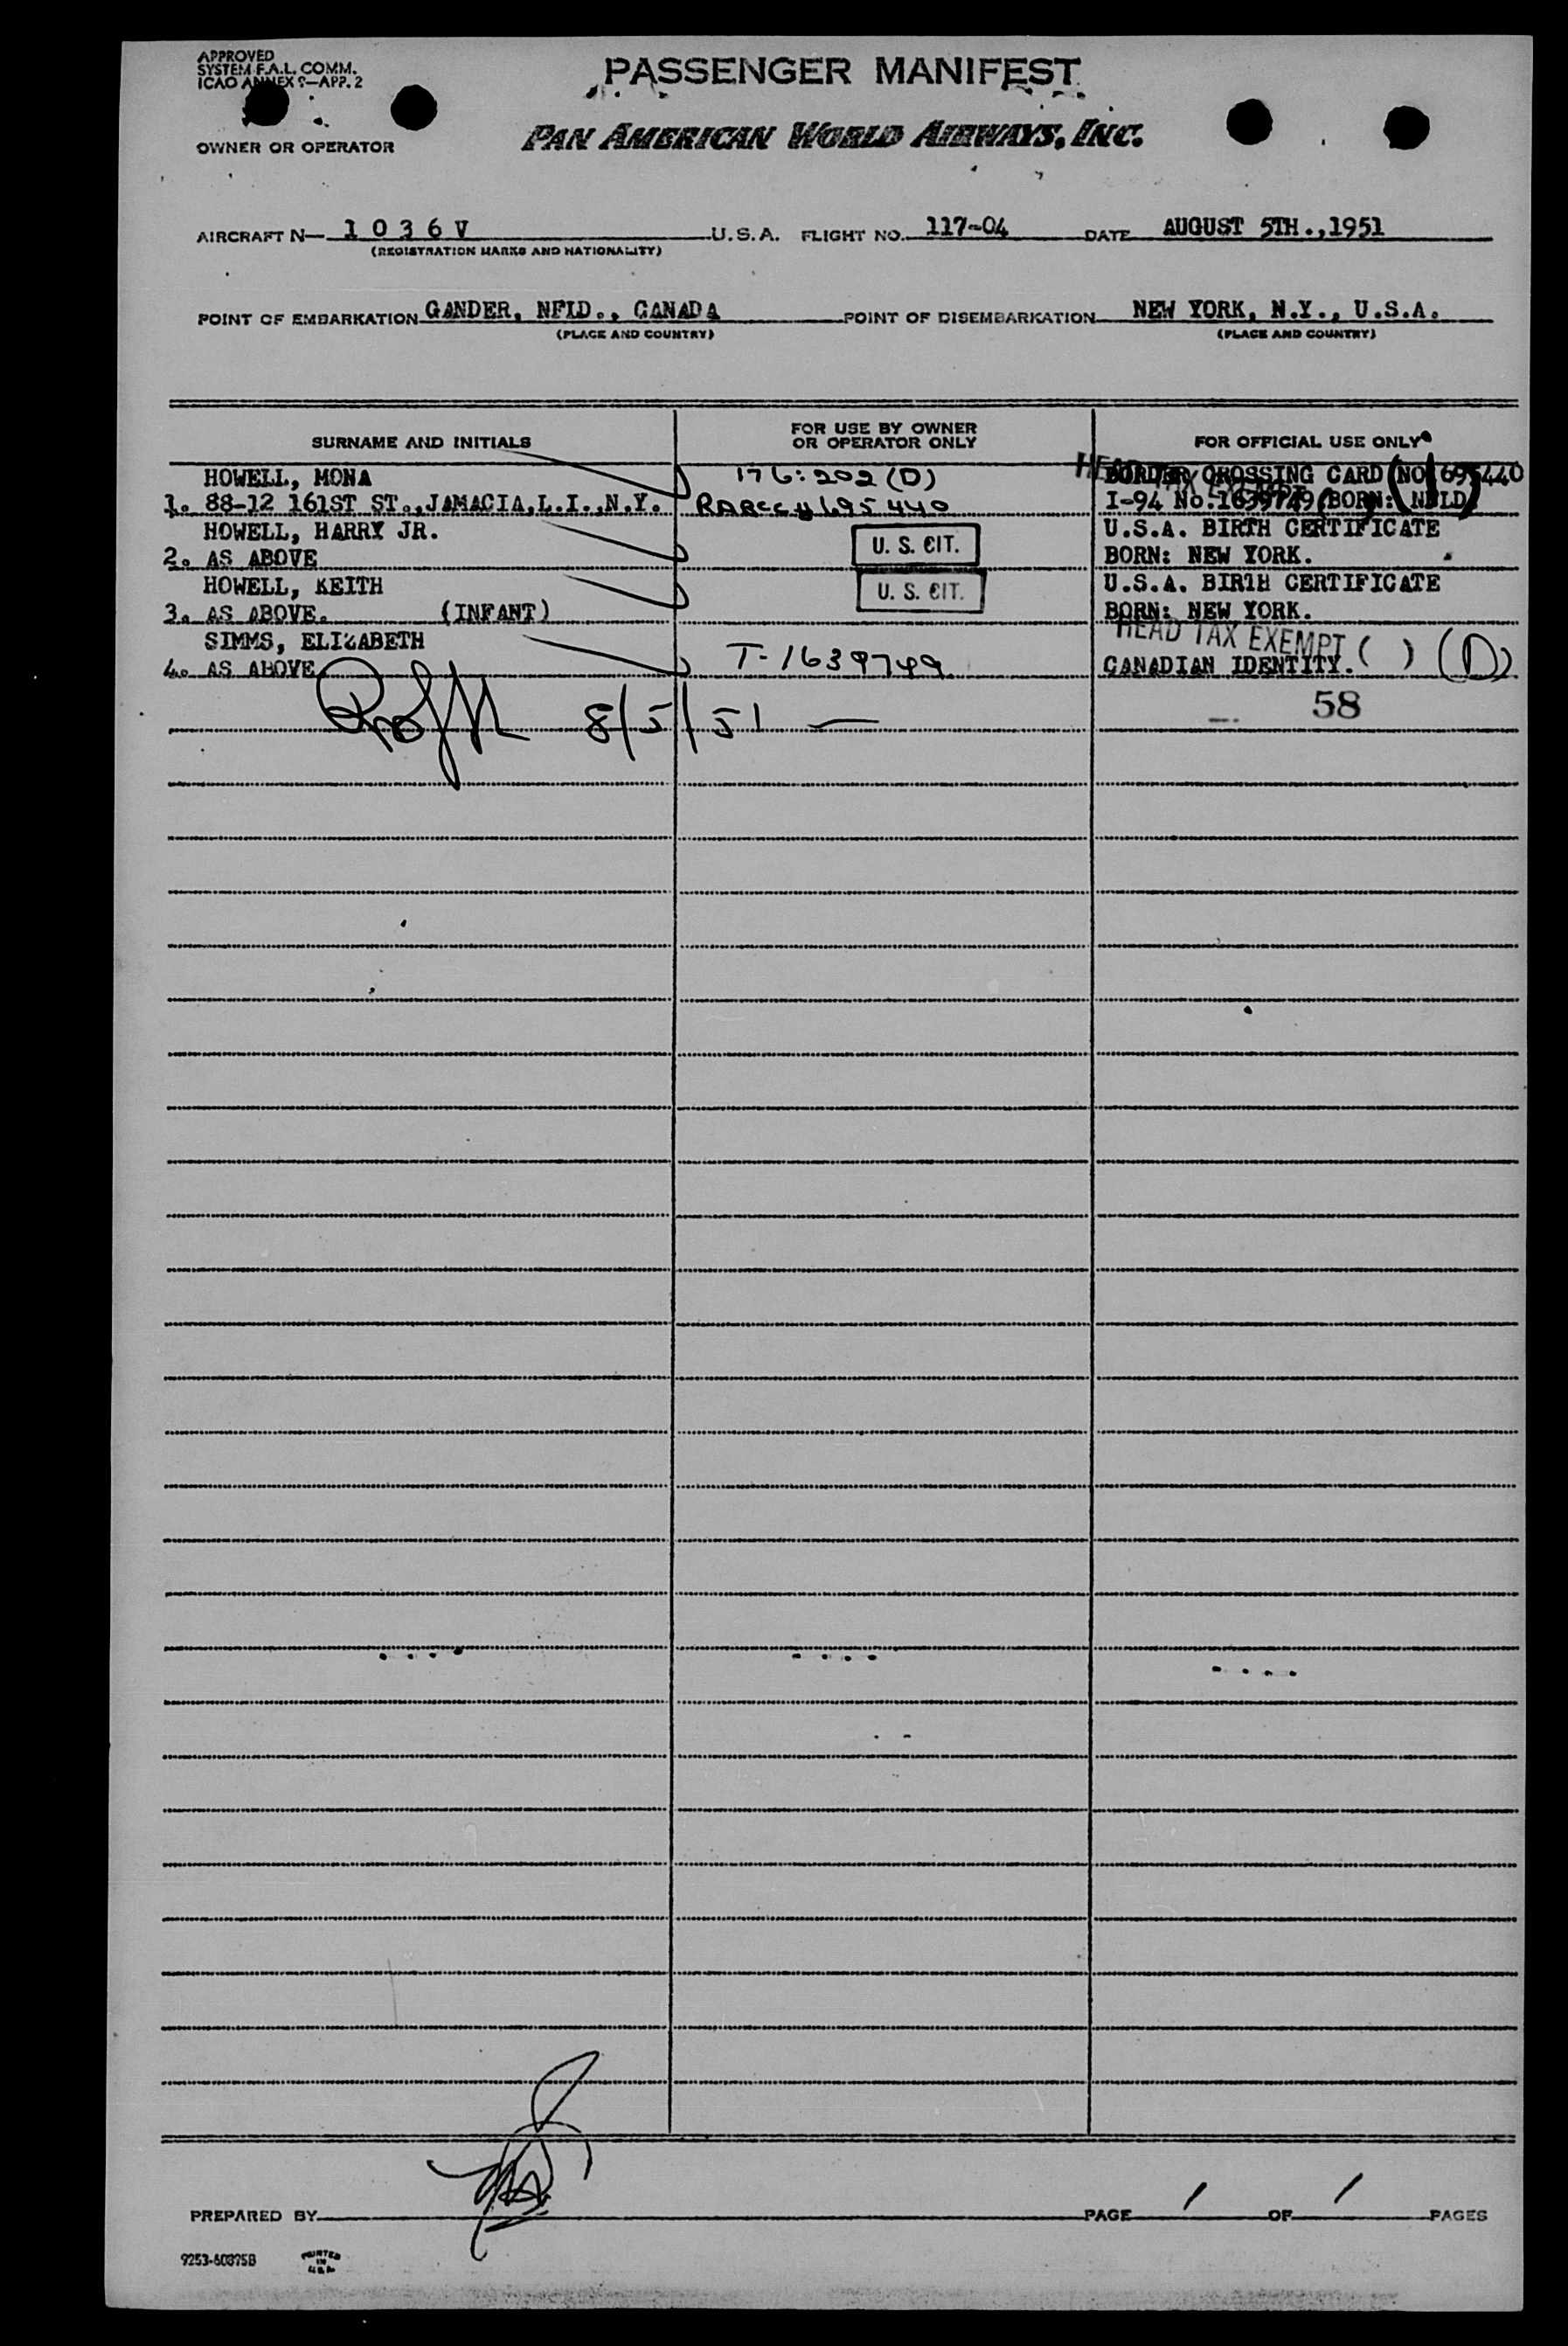 APPROVED
SYSTEM F.A.L. COMM.
ICAO ANNEX 9—APP. 2
PASSENGER MANIFEST
OWNER OR OPERATOR
PAN AMERICAN WORLD AIRWAYS, INC.
AIRCRAFT N— 1 0 3 6 V U.S.A. FLIGHT NO. 117-04 DATE AUGUST 5TH.,1951
(REGISTRATION MARKS AND NATIONALITY)
POINT OF EMBARKATION GANDER, NFLD., CANADA POINT OF DISEMBARKATION NEW YORK, N.Y., U.S.A.
(PLACE AND COUNTRY) (PLACE AND COUNTRY)
SURNAME AND INITIALS
FOR USE BY OWNER
OR OPERATOR ONLY
FOR OFFICIAL USE ONLY
HOWELL, MONA 176:202 (D) BORDER CROSSING CARD NO 695440
1. 88-12 161ST ST.,JAMACIA,L.I.,N.Y. RARCC # 695440 I-94 No.1639749 BORN: NFLD
HOWELL, HARRY JR. U.S.A. BIRTH CERTIFICATE
2. AS ABOVE U. S. CIT. BORN: NEW YORK.
HOWELL, KEITH U. S. CIT. U.S.A. BIRTH CERTIFICATE
3. AS ABOVE. (INFANT) BORN: NEW YORK.
SIMMS, ELIZABETH HEAD TAX EXEMPT ( ) (D)
4. AS ABOVE T-1639749 CANADIAN IDENTITY.
8/5/51 — 58
PREPARED BY PAGE 1 OF 1 PAGES
9253-60375B PRINTED
IN
U.S.A.